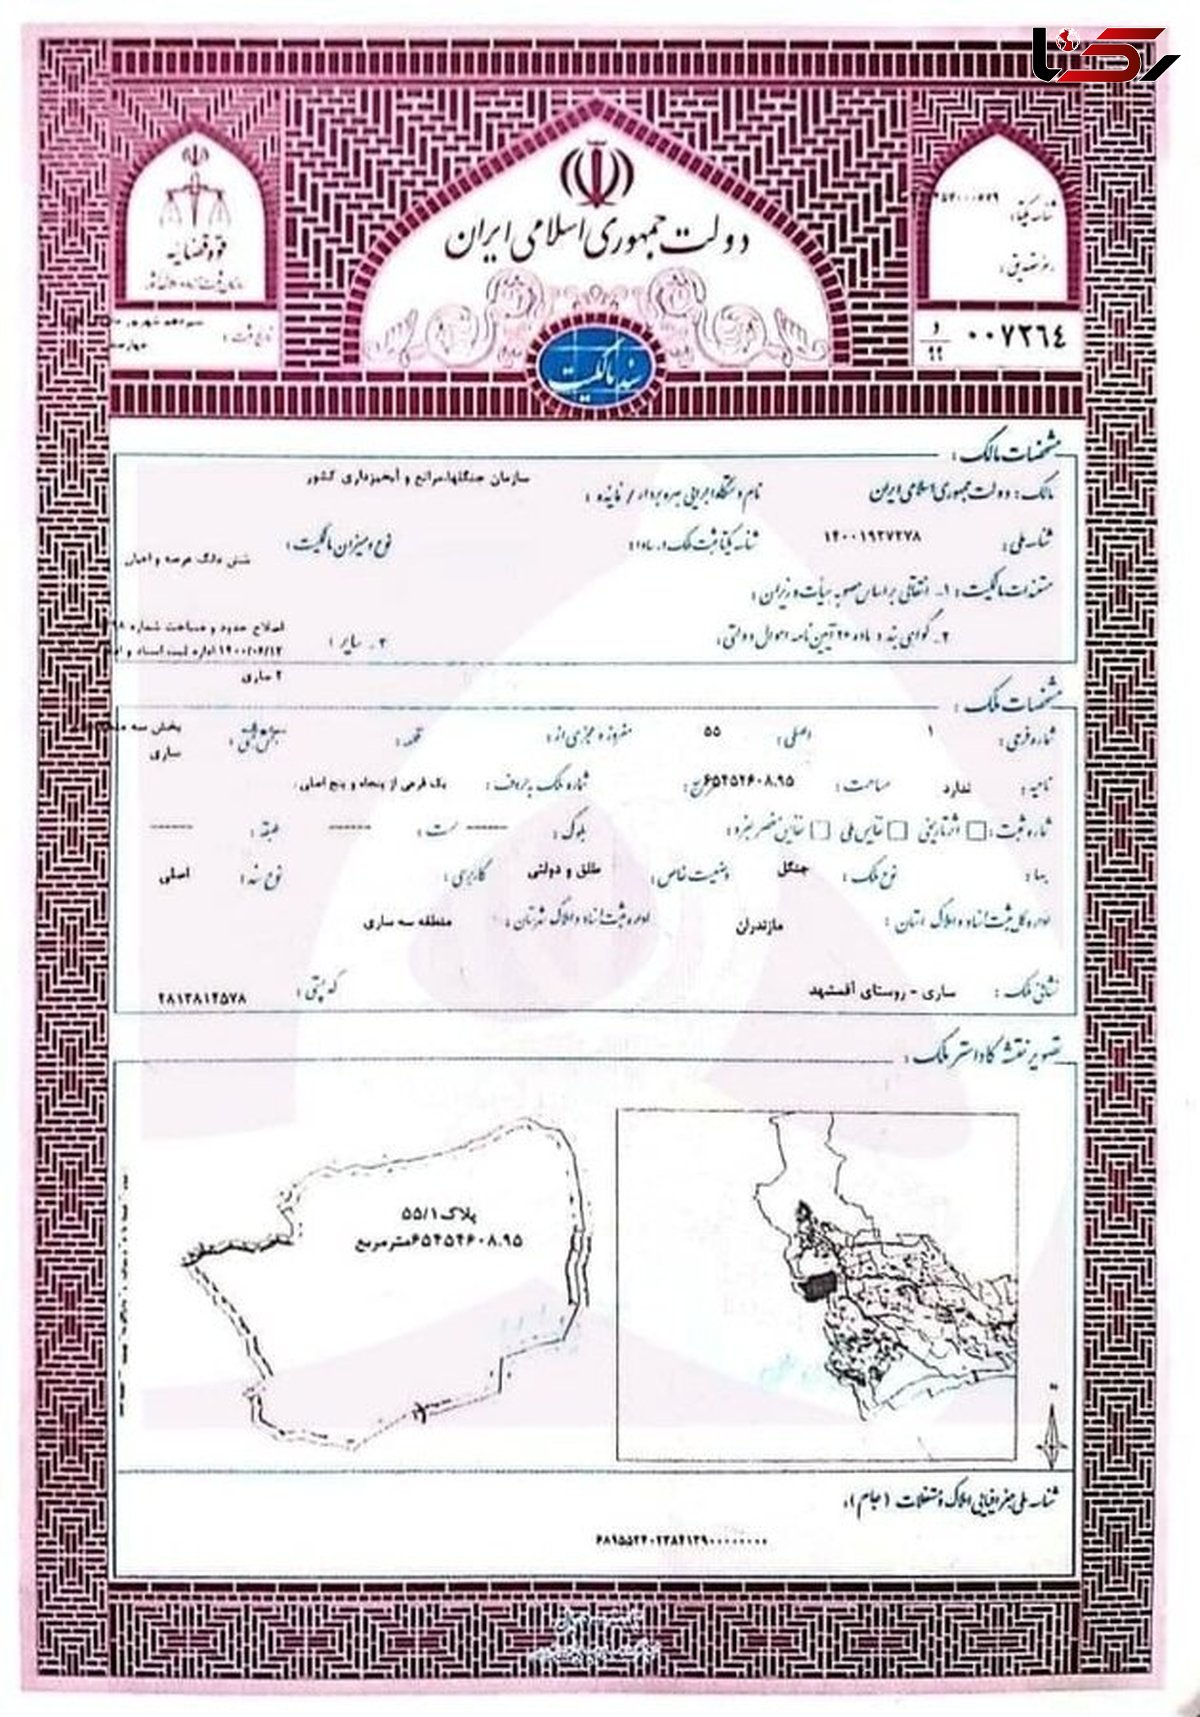 رکنا
دولت جمهوری اسلامی ایران
قوه قضائیه
سازمان ثبت اسناد و املاک کشور
شناسه یکتا:
رمز تصدیق:
تاریخ ثبت:
۰۰۷۲۶٤
سند مالکیت
مشخصات مالک:
مالک: دولت جمهوری اسلامی ایران نام دستگاه اجرایی بهره بردار / نماینده: سازمان جنگلها،مراتع و آبخیزداری کشور
شناسه ملی: ۱۴۰۰۱۹۲۷۲۷۸ شناسه یکتا ثبت ملک در سادا: نوع و میزان مالکیت: شش دانگ عرصه و اعیان
مستندات مالکیت: ۱- انتقالی بر اساس مصوبه هیأت وزیران:
۲- گواهی بند د ماده ۲۶ آیین نامه اموال دولتی: ۳- سایر: اصلاح حدود و مساحت شماره
۱۴۰۰/۰۶/۱۳ اداره ثبت اسناد و
۲ ساری
مشخصات ملک:
شماره فرعی: ۱ اصلی: ۵۵ مفروز و مجزی از: قطعه: بخش ثبتی: بخش سه
ساری
ناحیه: ندارد مساحت: ۶۵۴۵۴۶۰۸.۹۵ شماره ملک به حروف: یک فرعی از پنجاه و پنج اصلی
شماره ثبت: اثر تاریخی نفایس ملی نفایس منحصر بفرد: بلوک: ------ سمت: ------ طبقه: ------
بهاء: نوع ملک: جنگل وضعیت خاص: طلق و دولتی کاربری: نوع سند: اصلی
اداره کل ثبت اسناد و املاک استان: مازندران اداره ثبت اسناد و املاک شهرستان: منطقه سه ساری
نشانی ملک: ساری - روستای آفمشهد کد پستی: ۴۸۱۳۸۱۴۵۷۸
تصویر نقشه کاداستر ملک:
پلاک ۵۵/۱
۶۵۴۵۴۶۰۸.۹۵مترمربع
شناسه ملی جغرافیایی املاک و مستغلات (جام):